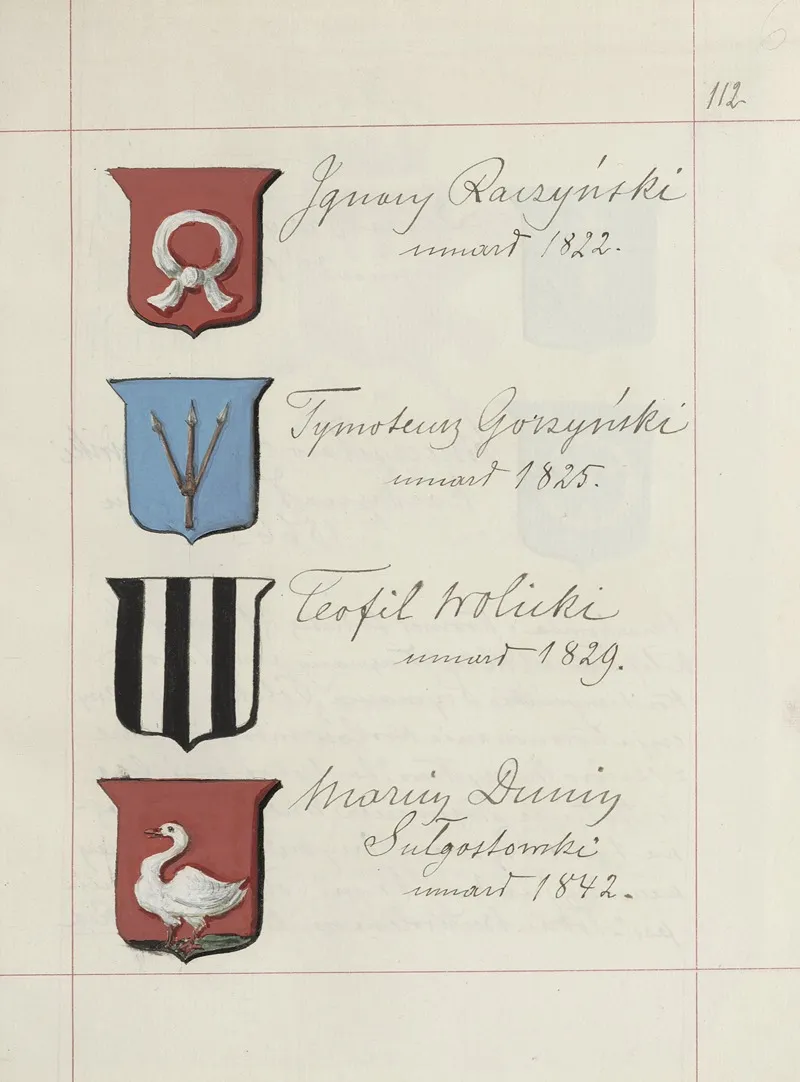 112
Ignacy Raczyński
umarł 1822.
Tymoteusz Gorzyński
umarł 1825.
Teofil Wolicki
umarł 1829.
Marcin Dunin
Sulgostowski
umarł 1842.